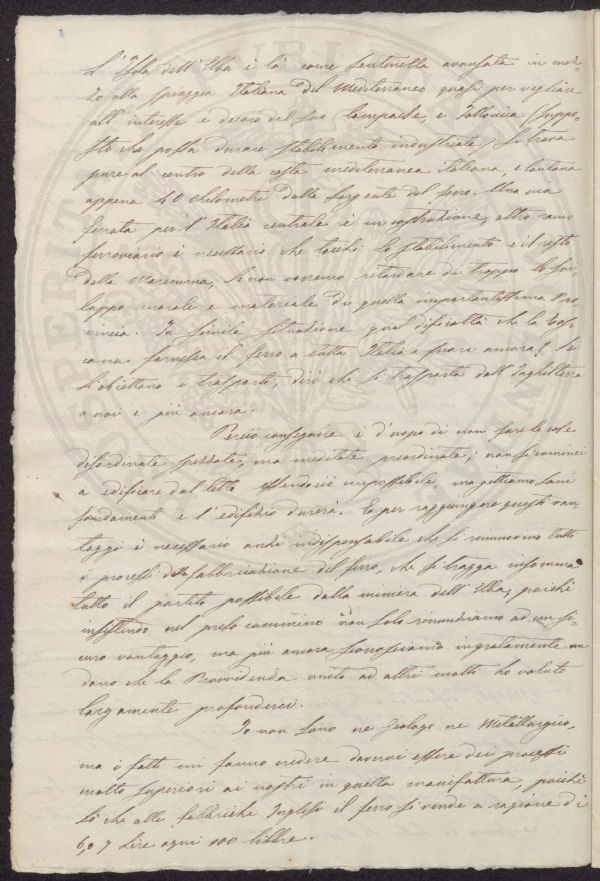 L'Isola dell'Elba è là come sentinella avanzata in mez-
zo alla spiaggia Italiana del Mediterraneo quasi per vigliare
all'interesse e decoro del suo e Follonica (suppo-
sto che possa durare stabilimento industriale) si trova
pure al centro della costa mediterranea italiana, e lontana
appena 40 chilometri dalla sorgente del ferro. Una via
ferrata per l'Italia centrale è in costruzione, altro ramo
ferroviario è necessario che tocchi lo stabilimento e il resto
della Maremma, se non vorremo ritardare di troppo lo svi-
luppo morale e materiale di quella importantissima Pro
vincia. In simile situazione qual dificoltà che la Tos-
cana fornisca il ferro a tutta Italia e fuori ancora? Se
si obiettano i trasporti, dirò che si trasporta dall'Inghilterra
a noi e più ancora.
Perciò conseguire è d'uopo di non fare le cose
disordinate spezzate, ma meditate preordinate; non si cominci
a edificare dal tetto essendociò impossibile, ma gettiamo sani
fondamenti e l'edifizio durerà. E per raggiungere questi van-
taggi è necessario anzi indispensabile che si rinnuovino tutti
i processi della fabbricazione del ferro, che si tragga insomma
tutto il partito possibile dalla miniera dell'Elba; poichè
insistendo nel preso cammino non solo rinunziamo ad un si-
curo vantaggio, ma più ancora sconosciamo ingratamente un
dono che la Provvidenza unito ad altri molti ha voluto
largamente profonderci.
Io non sono ne Geologo ne Metallurgico,
ma i fatti mi fanno credere doversi essere dei processi
molto superiori ai nostri in quella manifattura poichè
sò che alle fabbriche Inglesi il ferro si vende a ragione di
6, o 7 Lire ogni 100 libbre.